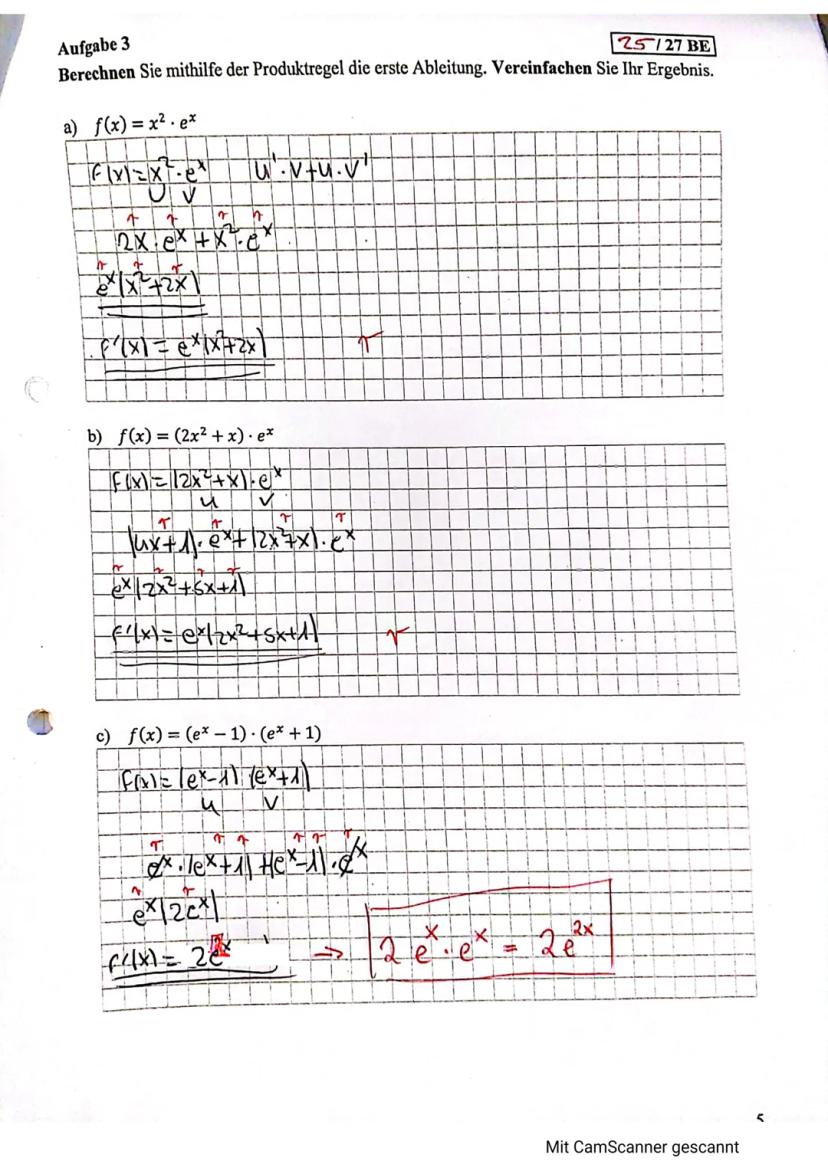 Aufgabe 3
25/27 BE
Berechnen Sie mithilfe der Produktregel die erste Ableitung. Vereinfachen Sie Ihr Ergebnis.
a) f(x) = x² · eˣ
f(x) = x² · eˣ u' · v + u · v'
u v
2x · eˣ + x² · eˣ
eˣ(x² + 2x)
f'(x) = eˣ(x² + 2x)
b) f(x) = (2x² + x) · eˣ
f(x) = (2x² + x) · eˣ
u v
(4x + 1) · eˣ + (2x² + x) · eˣ
eˣ(2x² + 5x + 1)
f'(x) = eˣ(2x² + 5x + 1)
c) f(x) = (eˣ − 1) · (eˣ + 1)
f(x) = (eˣ − 1) (eˣ + 1)
u v
eˣ · (eˣ + 1) + (eˣ − 1) · eˣ
eˣ(2eˣ)
f'(x) = 2e → 2 eˣ · eˣ = 2e²ˣ
5
Mit CamScanner gescannt